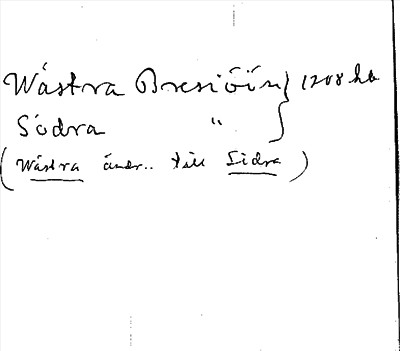 Wästra Bresjöön } 1208 hb
Södra "
(Wästra ändr.. till Södra)